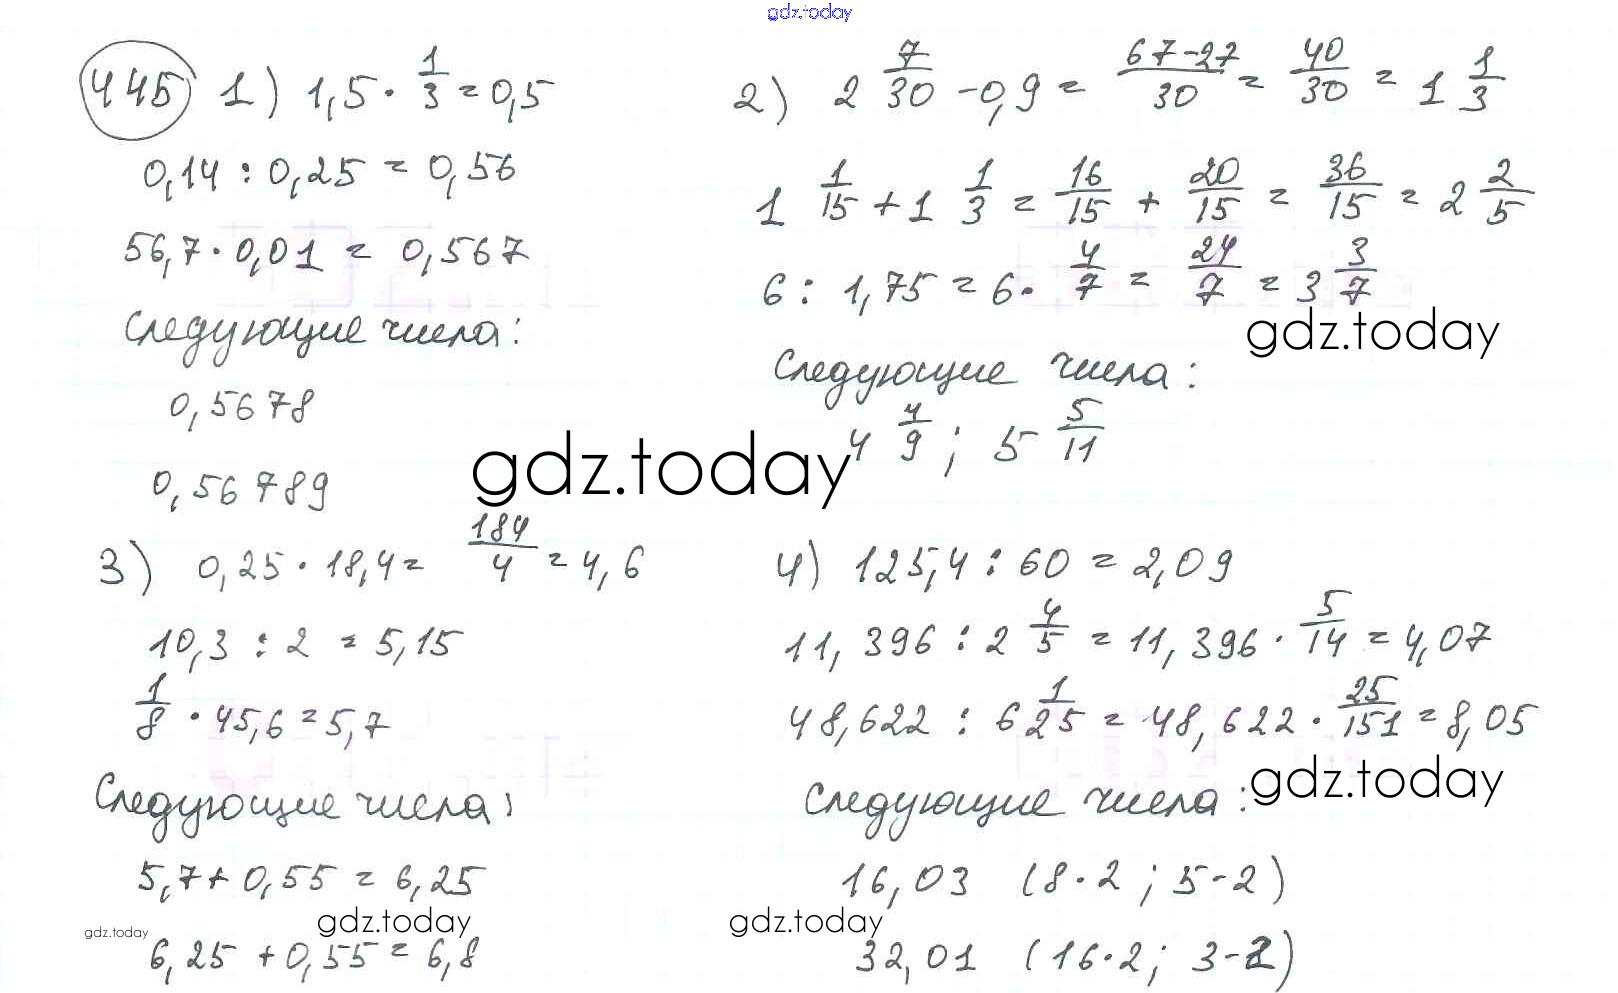 gdz.today
445 1) 1,5 · 1/3 = 0,5
0,14 : 0,25 = 0,56
56,7 · 0,01 = 0,567
Следующие числа:
0,5678
0,56789
2) 2 7/30 - 0,9 = 67-27/30 = 40/30 = 1 1/3
1 1/15 + 1 1/3 = 16/15 + 20/15 = 36/15 = 2 2/5
6 : 1,75 = 6 · 4/7 = 24/7 = 3 3/7
gdz.today
Следующие числа:
4 4/9 ; 5 5/11
gdz.today
3) 0,25 · 18,4 = 184/4 = 4,6
10,3 : 2 = 5,15
1/8 · 45,6 = 5,7
Следующие числа:
5,7 + 0,55 = 6,25
6,25 + 0,55 = 6,8
gdz.today
gdz.today
4) 125,4 : 60 = 2,09
11,396 : 2 4/5 = 11,396 · 5/14 = 4,07
48,622 : 6 1/25 = 48,622 · 25/151 = 8,05
gdz.today
Следующие числа:
16,03 (8·2 ; 5-2)
gdz.today
32,01 (16·2 ; 3-2)